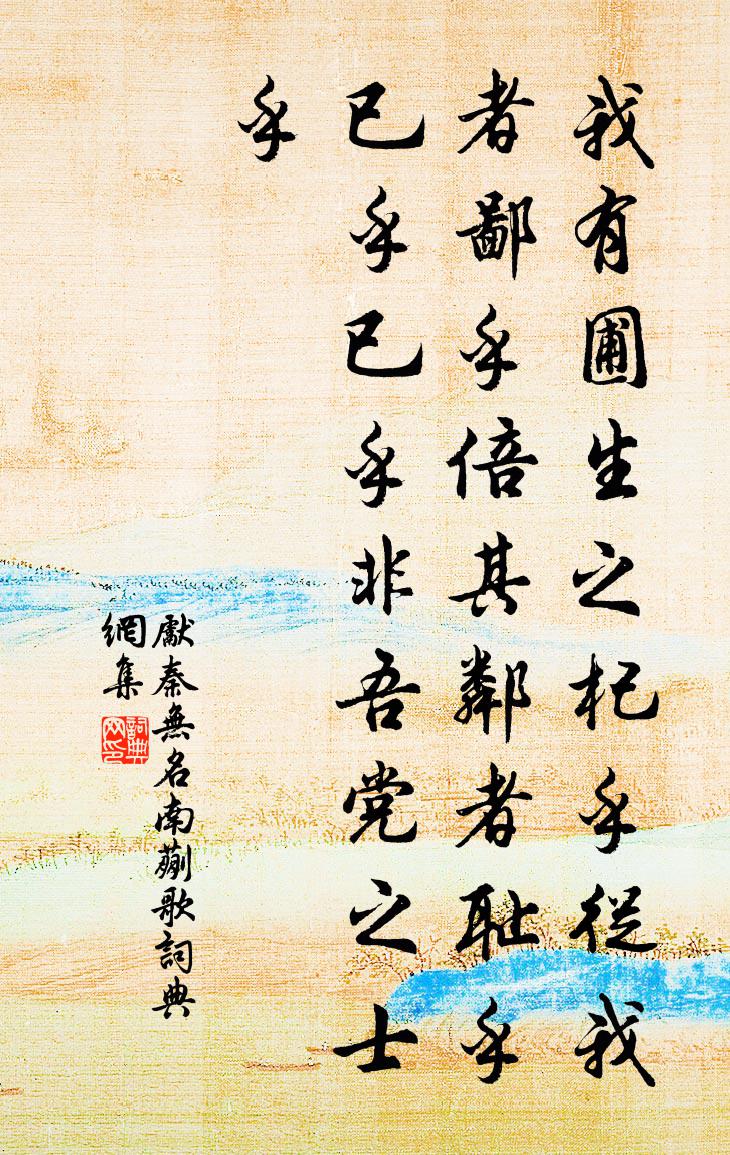 我有圃生之杞乎從我
者鄙乎倍其鄰者耻乎
已乎已乎非吾党之士
乎
獻秦無名南蒯歌詞典
網集
詞典
網印